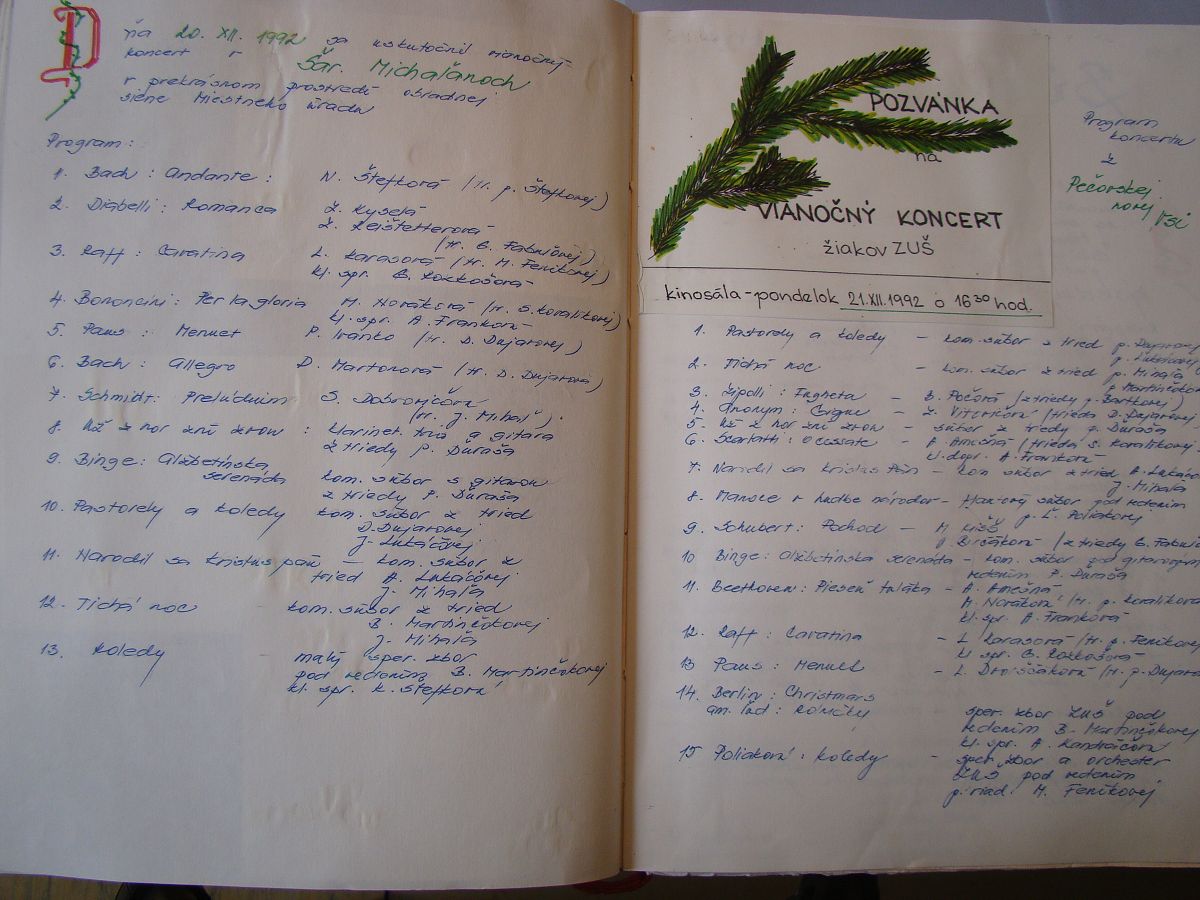 Dňa 20. XII. 1992 sa uskutočnil vianočný
koncert v Šar. Michaľanoch
v prekrásnom prostredí obradnej
siene Miestneho úradu
Program:
1. Bach: Andante: N. Štefková /tr. p. Štefkovej)
2. Diabelli: Romanca Ž. Kyselá
Ž. Reištetterová
/tr. G. Fabničnej)
3. Raff: Cavatina L. Karasová /tr. M. Feníkovej)
kl. spr. G. Rozkošová
4. Bononcini: Per la gloria M. Nováková /tr. S. Koralikovej)
kl. spr. A. Franková
5. Paus: Menuet P. Ivanko /tr. D. Dujavovej)
6. Bach: Allegro D. Martonová /tr. D. Dujavová)
7. Schmidt: Prelúdium S.
/tr. J. Mihaľ)
8. Už z hor zní zvon: klarinet. trio a gitara
z triedy p. Ďuraša
9. Binge: Alžbetínska
serenáda kom. súbor s gitarou
z triedy P. Ďuraša
10. Pastorely a koledy kom. súbor z tried
D. Dujavovej
J. Lukáčovej
11. Narodil sa Kristus pán – kom. súbor z
tried A. Lukáčovej
J. Mihaľa
12. Tichá noc – kom. súbor z tried
B. Martinčekovej
J. Mihaľa
13. Koledy – malý spev. zbor
pod vedením B. Martinčekovej
kl. spr. K. Štefková
POZVÁNKA
na
VIANOČNÝ KONCERT
žiakov ZUŠ
kinosála – pondelok 21.XII.1992 o 16³⁰ hod.
Program
koncertu
z
Pečovskej
novej Vsi
1. Pastorely a koledy – kom. súbor z tried p. Dujavovej
p. Lukáčovej
2. Tichá noc – kom. súbor z tried p. Mihaľa
p. Martinčekovej
3. Zipolli: Fugheta – B. Počová /z triedy p. Bartkovej)
4. Anonym: Gigue – Ž. /trieda D. Dujavovej
5. Už z hor zní zvon – súbor z triedy p. Ďuraša
6. Scarlatti: – A. Amešná /trieda S. Koralikovej
kl. dopr. A. Franková
7. Narodil sa Kristus Pán – kom. súbor z tried A. Lukáčov
J. Mihaľa
8. Vianoce v hudbe národov – súbor pod vedením
p. Ľ. Poliakovej
9. Schubert: Pochod – M. Kišš
/z triedy G. Fabnič
10 Binge: Alžbetínska serenáda – kom. súbor pod
vedením P. Ďuraša
11. Beethoven: Pieseň tuláka – A. Amešná
M. Nováková /tr. p. Koralikova
kl. spr. A. Franková
12. Raff: Cavatina – L Karasová /tr. p. Feníkovej
kl spr. G. Rozkošová
13 Paus: Menuet – L. /tr. p. Dujavov
14. Berlin: Christmars
am. ľud: Roničky spev. zbor ZUŠ pod
vedením B. Martinčekovej
kl. spr. A. Kandráčová
15 Poliaková: Koledy – spev. zbor a orchester
ZUŠ pod vedením
p. riad. M. Feníkovej